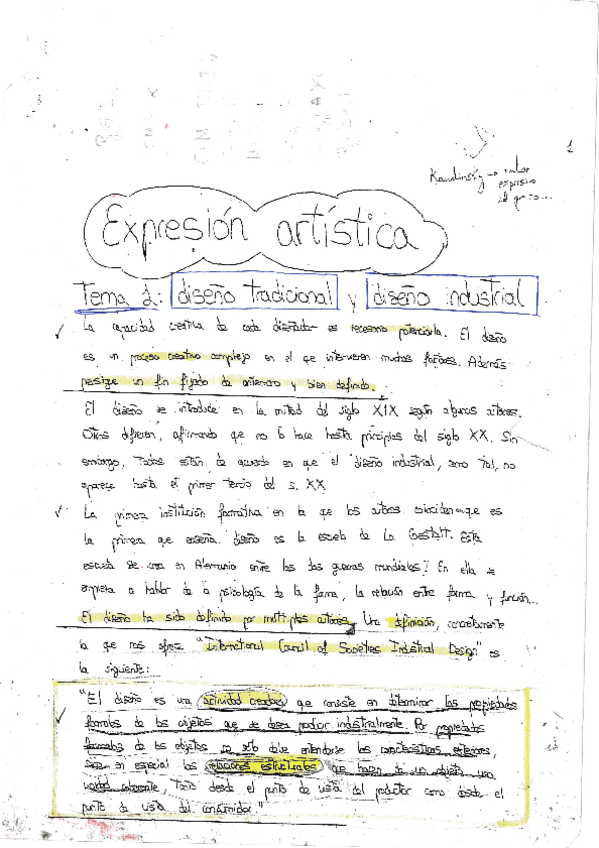 1
Kandinsky → valor
expresivo
Expresión artística
Tema 1: diseño tradicional y diseño industrial
✓ La capacidad creativa de cada diseñador es necesario potenciarla. El diseño
es un proceso creativo complejo en el que intervienen muchos factores. Además
persigue un fin fijado de antemano y bien definido.
El diseño se introduce en la mitad del siglo XIX según algunos autores.
Otros difieren, afirmando que no lo hace hasta principios del siglo XX. Sin
embargo, todos están de acuerdo en que el diseño industrial, como tal, no
aparece hasta el primer tercio del s. XX.
✓ La primera institución formativa en la que los autores coinciden que es
la primera que enseña diseño es la escuela de La Gestalt. Esta
escuela se crea en Alemania entre las dos guerras mundiales. En ella se
empieza a hablar de la psicología de la forma, la relación entre forma y función...
El diseño ha sido definido por múltiples autores. Una definición, concretamente
la que nos ofrece "International Council of Societies Industrial Design" es
la siguiente:
"El diseño es una actividad creadora que consiste en determinar las propiedades
✓ formales de los objetos que se desea producir industrialmente. Por propiedades
formales de los objetos no sólo debe entenderse las características exteriores,
sino en especial las relaciones estructurales que hacen de un objeto una
unidad coherente, tanto desde el punto de vista del productor como desde el
punto de vista del consumidor"